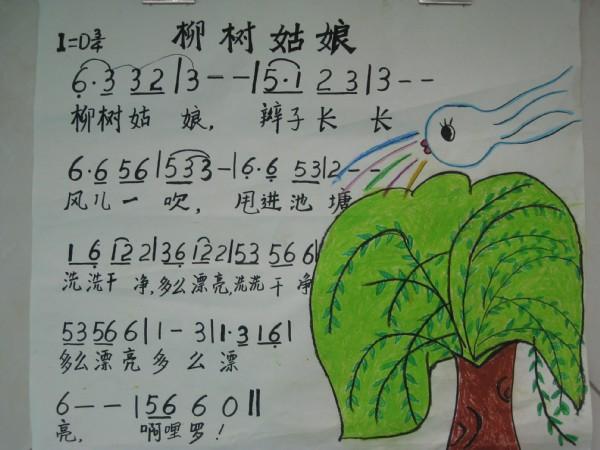 柳树姑娘
1=D 3/4
6·3 32|3--|5·1 23|3--
柳树姑 娘, 辫子长 长
6·6 56|533-|6·6 53|2--
风儿一 吹, 甩进池 塘
1 6 12 2|36 12 2|53 56 6|
洗洗干 净,多么漂亮,洗洗干 净
53 56 6|1-3|1·3 16|
多么漂亮 多么漂
6--|56 6 0‖
亮, 啊哩罗!